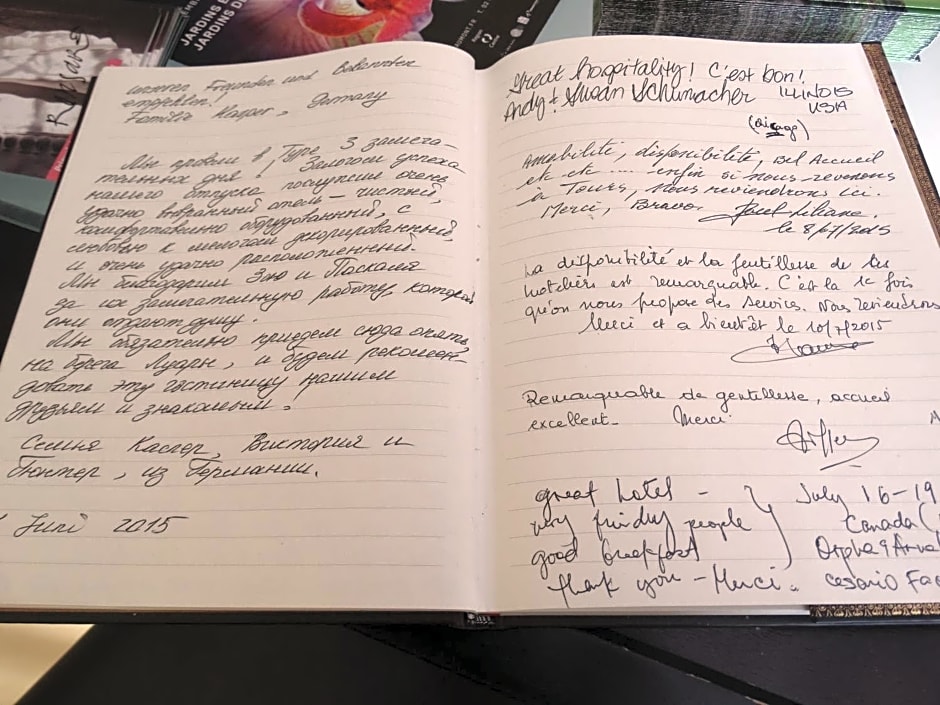 JARDINS DU
JARDINS DE
unseren Freunden und Bekannten
empfehlen!
Familie Kasper, Germany
Мы провели в Туре 3 замеча-
тельных дня! Залогом успеха
нашего отпуска послужил очень
удачно выбранный отель – чистый,
комфортабельно оборудованный, с
любовью к мелочам декорированный,
и очень удачно расположенный.
Мы благодарим Зою и Паскаля
за их замечательную работу, которой
они отдают душу.
Мы обязательно приедем сюда опять,
на берега Луары, и будем рекомен-
довать эту гостиницу нашим
друзьям и знакомым.
Семья Каспер, Виктория и
Гюнтер, из Германии.
Juni 2015
Great hospitality! C'est bon!
Andy + Susan Schumacher ILLINOIS
USA
(Chicago)
Amabilité, disponibilité, Bel Accueil
etc etc .... enfin si nous revenons
à Tours, nous reviendrons ici.
Merci, Bravo.
le 8/07/2015
La disponibilité et la gentillesse de les
hoteliers est remarquable. C'est la 1e fois
qu'on nous propose des services. Nous reviendrons
Merci et a bientôt le 10/7/2015
Remarquable de gentillesse, accueil
excellent. Merci
great hotel – July 16-19
very friendly people Canada
good breakfast Orpha &
thank you – Merci. cesario